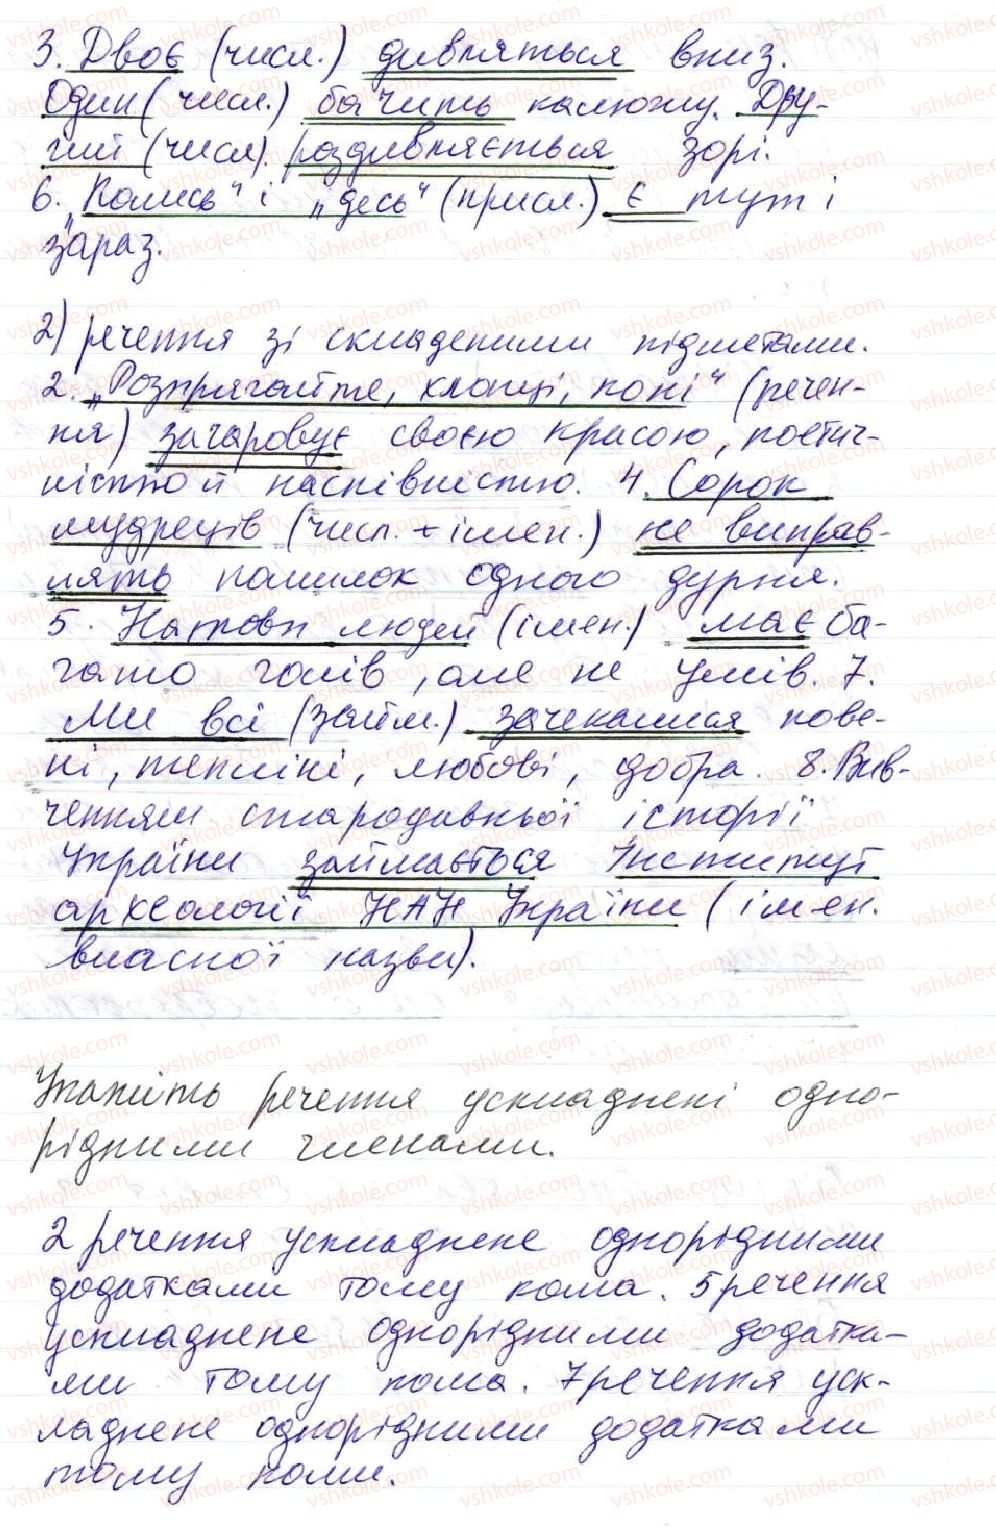 3. Двоє (числ.) дивляться вниз.
Один (числ.) бачить калюжу. Дру-
гий (числ). роздивляється зорі.
6. „Колись" і „десь" (присл.) є тут і
зараз.
2) речення зі складеними підметами.
2. „Розпрягайте, хлопці, коні" (речен-
ня) зачаровує своєю красою, поетич-
ністю й наспівністю. 4. Сорок
мудреців (числ. + імен.) не виправ-
лять помилок одного дурня.
5. Натовп людей (імен.) має ба-
гато голів, але не умів. 7.
Ми всі (займ.) зачекалися пове-
ні, теплині, любові, добра. 8. Вив-
ченням стародавньої історії
України займається Інститут
археології НАН України (імен.
власної назви).
Укажіть речення ускладнені одно-
рідними членами.
2 речення ускладнене однорідними
додатками тому кома. 5 речення
ускладнене однорідними додатка-
ми тому кома. 7 речення уск-
ладнене однорідними додатками
тому коми.